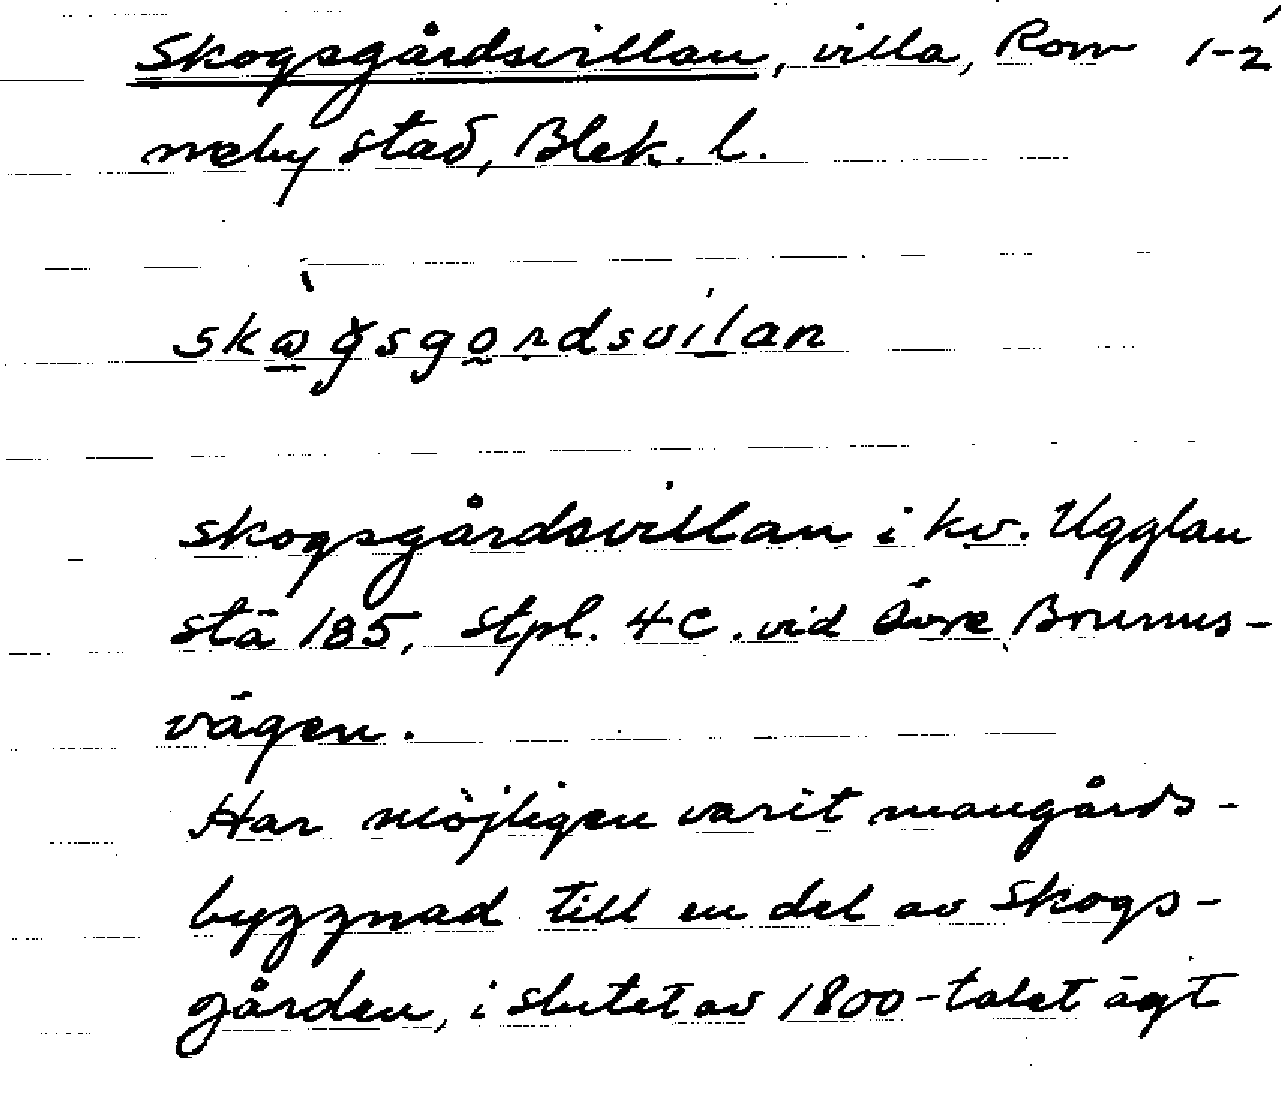 Skogsgårdsvillan, villa, Ron 1-2
neby stad, Blek. l.
skogsgårdsvillan i kv. Ugglan
stä 185, Stpl. 4C. vid Övre Brunns-
vägen.
Har möjligen varit mangårds-
byggnad till en del av Skogs-
gården, i slutet av 1800-talet ägt